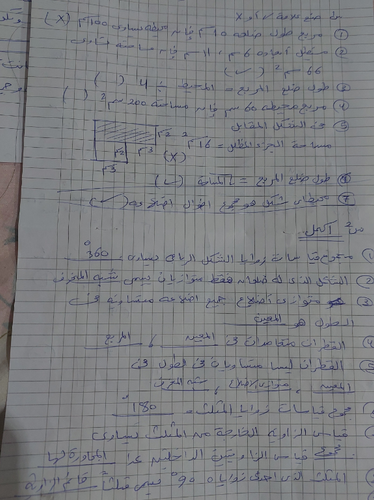 ضع علامة ✓ أو X
① مربع طول ضلعه 10 م فإنه محيطه يساوى 100 م (X)
② مستطيل أبعاده 6 سم، 11 سم فإن مساحته تساوى
66 سم² (✓)
③ طول ضلع المربع = المحيط ÷ 4 ( )
④ مربع محيطه 60 سم فإنه مساحته 200 سم² ( )
⑤ فى الشكل المقابل
مساحة الجزء المظلل = 16 م² (X)
2م
2م 3م
3م
⑥ طول ضلع المربع = √المساحة (✓)
⑦ محيط أى شكل هو مجموع أطوال أضلاعه (✓)
س2 أكمل
① مجموع قياسات زوايا الشكل الرباعى يساوى 360°
② الشكل الذى له ضلعان فقط متوازيان يسمى شبه المنحرف
③ متوازى أضلاع جميع أضلاعه متساوية فى
الطول هو المعين
④ القطران متعامدان فى المعين، المربع
⑤ القطران ليسا متساويان فى الطول فى
المعين، متوازى أضلاع، شبه المنحرف
مجموع قياسات زوايا المثلث = 180°
قياس الزاوية الخارجة عن المثلث يساوى
مجموع قياس الزاويتين الداخليتين عدا المجاورة لها
المثلث الذى إحدى زواياه 90° يسمى مثلث قائم الزاوية